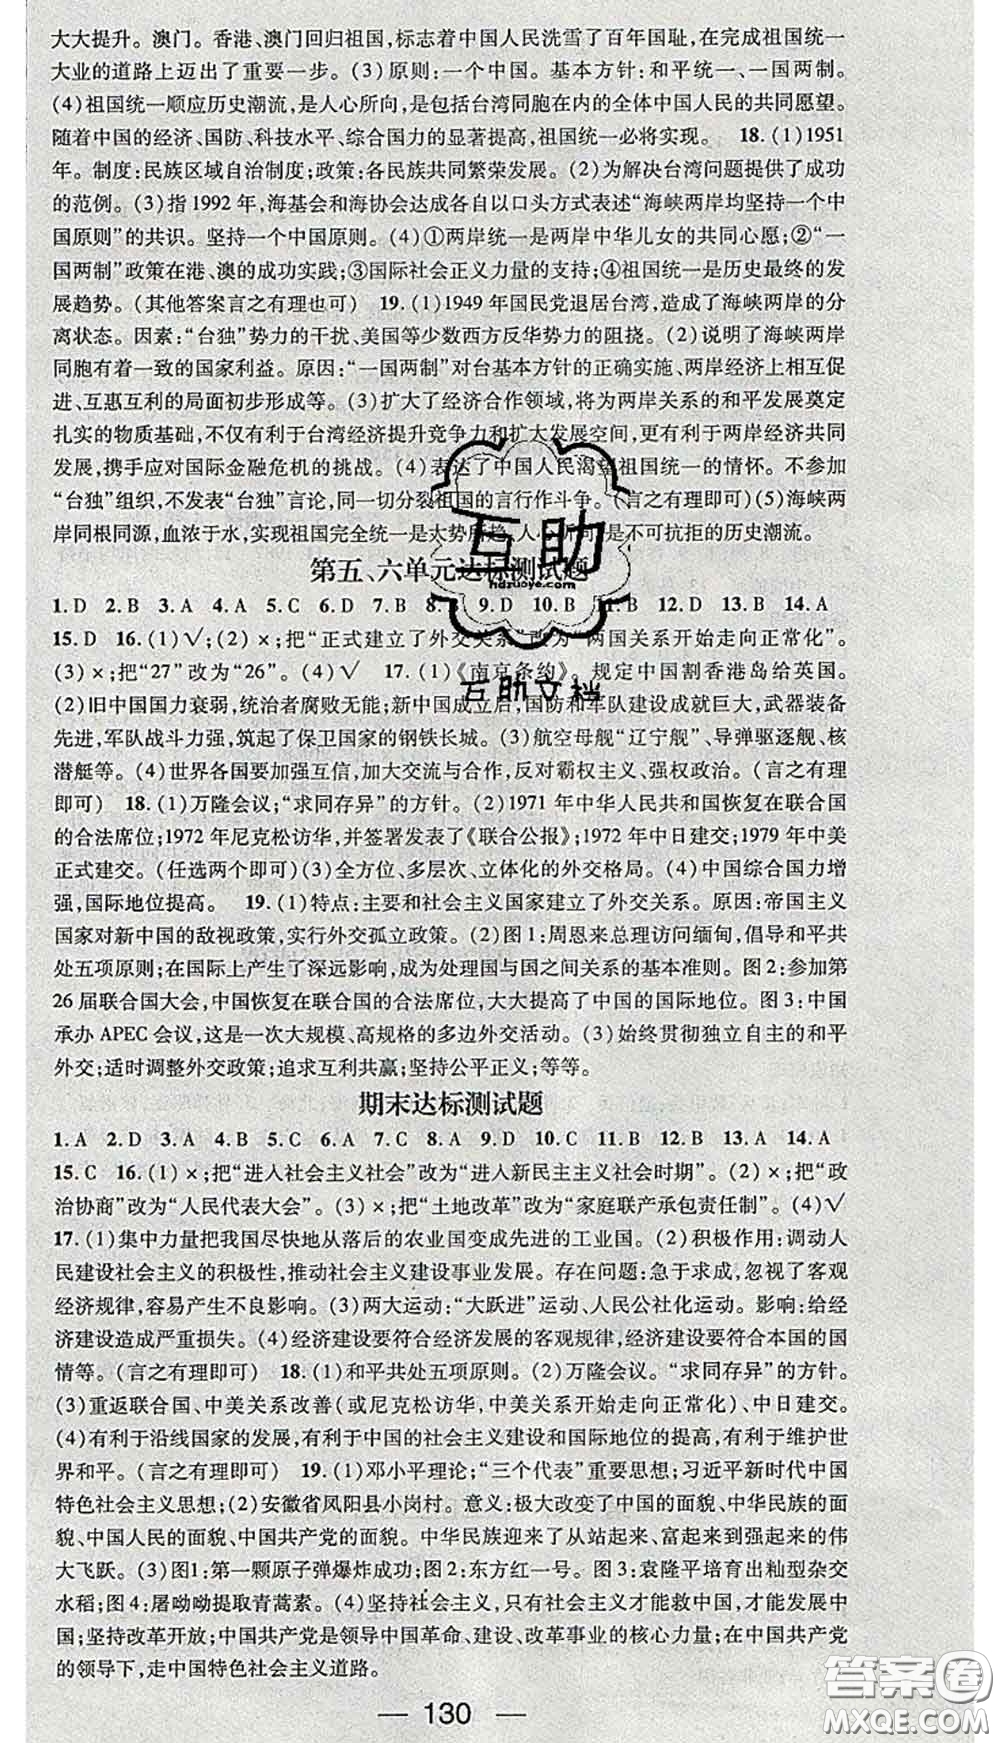 大大提升。澳门。香港、澳门回归祖国,标志着中国人民洗雪了百年国耻,在完成祖国统一
大业的道路上迈出了重要一步。(3)原则:一个中国。基本方针:和平统一、一国两制。
(4)祖国统一顺应历史潮流,是人心所向,是包括台湾同胞在内的全体中国人民的共同愿望。
随着中国的经济、国防、科技水平、综合国力的显著提高,祖国统一必将实现。 18.(1)1951
年。制度:民族区域自治制度;政策:各民族共同繁荣发展。(2)为解决台湾问题提供了成功
的范例。(3)指1992年,海基会和海协会达成各自以口头方式表述“海峡两岸均坚持一个中
国原则”的共识。坚持一个中国原则。(4)①两岸统一是两岸中华儿女的共同心愿;②“一
国两制”政策在港、澳的成功实践;③国际社会正义力量的支持;④祖国统一是历史最终的发
展趋势。(其他答案言之有理也可) 19.(1)1949年国民党退居台湾,造成了海峡两岸的分
离状态。因素:“台独”势力的干扰、美国等少数西方反华势力的阻挠。(2)说明了海峡两岸
同胞有着一致的国家利益。原因:“一国两制”对台基本方针的正确实施、两岸经济上相互促
进、互惠互利的局面初步形成等。(3)扩大了经济合作领域,将为两岸关系的和平发展奠定
扎实的物质基础,不仅有利于台湾经济提升竞争力和扩大发展空间,更有利于两岸经济共同
发展,携手应对国际金融危机的挑战。(4)表达了中国人民渴望祖国统一的情怀。不参加
“台独”组织,不发表“台独”言论,同一切分裂祖国的言行作斗争。(言之有理即可)(5)海峡两
岸同根同源,血浓于水,实现祖国完全统一是大势所趋,人心所向,是不可抗拒的历史潮流。
第五、六单元达标测试题
1.D 2.B 3.A 4.A 5.C 6.D 7.B 8.B 9.D 10.B 11.B 12.D 13.B 14.A
15.D 16.(1)√;(2)×;把“正式建立了外交关系”改为“两国关系开始走向正常化”。
(3)×;把“27”改为“26”。(4)√ 17.(1)《南京条约》。规定中国割香港岛给英国。
(2)旧中国国力衰弱,统治者腐败无能;新中国成立后,国防和军队建设成就巨大,武器装备
先进,军队战斗力强,筑起了保卫国家的钢铁长城。(3)航空母舰“辽宁舰”、导弹驱逐舰、核
潜艇等。(4)世界各国要加强互信,加大交流与合作,反对霸权主义、强权政治。(言之有理
即可) 18.(1)万隆会议;“求同存异”的方针。(2)1971年中华人民共和国恢复在联合国
的合法席位;1972年尼克松访华,并签署发表了《联合公报》;1972年中日建交;1979年中美
正式建交。(任选两个即可)(3)全方位、多层次、立体化的外交格局。(4)中国综合国力增
强,国际地位提高。 19.(1)特点:主要和社会主义国家建立了外交关系。原因:帝国主义
国家对新中国的敌视政策,实行外交孤立政策。(2)图1:周恩来总理访问缅甸,倡导和平共
处五项原则;在国际上产生了深远影响,成为处理国与国之间关系的基本准则。图2:参加第
26届联合国大会,中国恢复在联合国的合法席位,大大提高了中国的国际地位。图3:中国
承办APEC会议,这是一次大规模、高规格的多边外交活动。(3)始终贯彻独立自主的和平
外交;适时调整外交政策;追求互利共赢;坚持公平正义;等等。
期末达标测试题
1.A 2.D 3.A 4.B 5.C 6.A 7.C 8.A 9.D 10.C 11.B 12.B 13.A 14.A
15.C 16.(1)×;把“进入社会主义社会”改为“进入新民主主义社会时期”。(2)×;把“政
治协商”改为“人民代表大会”。(3)×;把“土地改革”改为“家庭联产承包责任制”。(4)√
17.(1)集中力量把我国尽快地从落后的农业国变成先进的工业国。(2)积极作用:调动人
民建设社会主义的积极性,推动社会主义建设事业发展。存在问题:急于求成,忽视了客观
经济规律,容易产生不良影响。(3)两大运动:“大跃进”运动、人民公社化运动。影响:给经
济建设造成严重损失。(4)经济建设要符合经济发展的客观规律,经济建设要符合本国的国
情等。(言之有理即可) 18.(1)和平共处五项原则。(2)万隆会议。“求同存异”的方针。
(3)重返联合国、中美关系改善(或尼克松访华,中美关系开始走向正常化)、中日建交。
(4)有利于沿线国家的发展,有利于中国的社会主义建设和国际地位的提高,有利于维护世
界和平。(言之有理即可) 19.(1)邓小平理论;“三个代表”重要思想;习近平新时代中国
特色社会主义思想;(2)安徽省凤阳县小岗村。意义:极大改变了中国的面貌、中华民族的面
貌、中国人民的面貌、中国共产党的面貌。中华民族迎来了从站起来、富起来到强起来的伟
大飞跃。(3)图1:第一颗原子弹爆炸成功;图2:东方红一号。图3:袁隆平培育出籼型杂交
水稻;图4:屠呦呦提取青蒿素。(4)坚持社会主义,只有社会主义才能救中国,才能发展中
国;坚持改革开放;中国共产党是领导中国革命、建设、改革事业的核心力量;在中国共产党
的领导下,走中国特色社会主义道路。
— 130 —
互助
hdzuoye.com
互助文档
答案圈
MXQE.COM